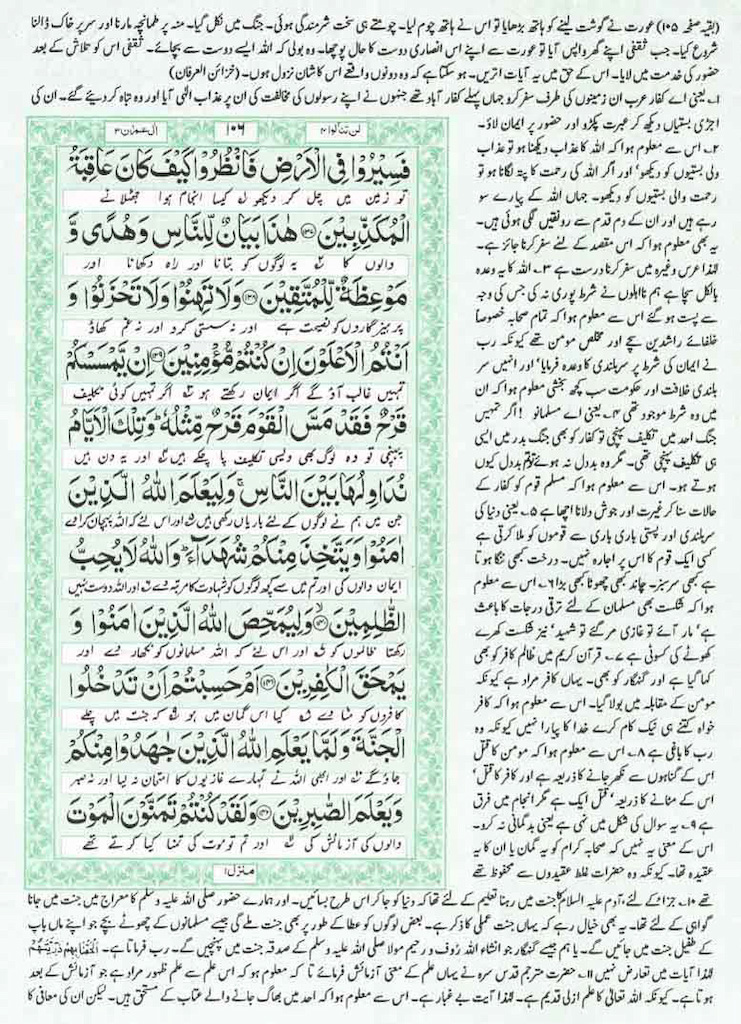 (بقیہ صفحہ ۱۰۵) عورت نے گوشت لینے کو ہاتھ بڑھایا تو اس نے ہاتھ چوم لیا۔ چومتے ہی سخت شرمندگی ہوئی۔ جنگل میں نکل گیا۔ منہ پر طمانچہ مارنا اور سر پر خاک ڈالنا
شروع کیا۔ جب ثقفی اپنے گھر واپس آیا تو عورت سے اپنے اس انصاری دوست کا حال پوچھا۔ وہ بولی کہ اللہ ایسے دوست سے بچائے۔ ثقفی اس کو تلاش کے بعد
حضور کی خدمت میں لایا۔ اس کے حق میں یہ آیات اتریں۔ ہو سکتا ہے کہ وہ دونوں واقعے اس کا شان نزول ہوں۔ (خزائن العرفان)
۱۔ یعنی اے کفار عرب ان زمینوں کی طرف سفر کرو جہاں پہلے کفار آباد تھے جنہوں نے اپنے رسولوں کی مخالفت کی ان پر عذاب الٰہی آیا اور وہ تباہ کر دیئے گئے۔ ان کی
اجڑی بستیاں دیکھ کر عبرت پکڑو اور حضور پر ایمان لاؤ۔
۲۔ اس سے معلوم ہوا کہ اللہ کا عذاب دیکھنا ہو تو عذاب
ولی بستیوں کو دیکھو' اور اگر اللہ کی رحمت کا پتہ لگانا ہو تو
رحمت والی بستیوں کو دیکھو۔ جہاں اللہ کے پیارے سو
رہے ہیں اور ان کے دم قدم سے رونقیں لگی ہوئی ہیں۔
یہ بھی معلوم ہوا کہ اس مقصد کے لئے سفر کرنا جائز ہے۔
لہٰذا عرس وغیرہ میں سفر کرنا درست ہے ۳۔ اللہ کا یہ وعدہ
بالکل سچا ہے ہم نااہلوں نے شرط پوری نہ کی جس کی وجہ
سے پست ہو گئے اس سے معلوم ہوا کہ تمام صحابہ خصوصاً
خلفائے راشدین سچے اور مخلص مومن تھے کیونکہ رب
نے ایمان کی شرط پر سربلندی کا وعدہ فرمایا' اور انہیں سر
بلندی خلافت اور حکومت سب کچھ بخشی معلوم ہوا کہ ان
میں وہ شرط موجود تھی ۴۔ یعنی اے مسلمانو! اگر تمہیں
جنگ احد میں تکلیف پہنچی تو کفار کو بھی جنگ بدر میں ایسی
ہی تکلیف پہنچی تھی۔ مگر وہ بددل نہ ہوئے تم بددل کیوں
ہوتے ہو۔ اس سے معلوم ہوا کہ مسلم قوم کو کفار کے
حالات سنا کر غیرت اور جوش دلانا اچھا ہے ۵۔ یعنی دنیا کی
سربلندی اور پستی باری باری سے قوموں کو ملا کرتی ہے
کسی ایک قوم کا اس پر اجارہ نہیں۔ درخت کبھی ننگا ہوتا
ہے کبھی سرسبز۔ چاند کبھی چھوٹا کبھی بڑا ۶۔ اس سے معلوم
ہوا کہ شکست بھی مسلمان کے لئے ترقی درجات کا باعث
ہے' مار آئے تو غازی مر گئے تو شہید' نیز شکست کھرے
کھوٹے کی کسوٹی ہے ۷۔ قرآن کریم میں ظالم کافر کو بھی
کہا گیا ہے اور گنہگار کو بھی۔ یہاں کافر مراد ہے کیونکہ
مومن کے مقابلہ میں بولا گیا۔ اس سے معلوم ہوا کہ کافر
خواہ کتنے ہی نیک کام کرے خدا کا پیارا نہیں کیونکہ وہ
رب کا باغی ہے ۸۔ اس سے معلوم ہوا کہ مومن کا قتل
اس کے گناہوں سے نکھر جانے کا ذریعہ ہے اور کافر کا قتل'
اس کے مٹانے کا ذریعہ' قتل ایک ہے مگر انجام میں فرق
ہے ۹۔ یہ سوال کی شکل میں نہی ہے یعنی بدگمانی نہ کرو۔
اس کے معنی یہ نہیں کہ صحابہ کرام کو یہ گمان یا ان کا یہ
عقیدہ تھا۔ کیونکہ وہ حضرات غلط عقیدوں سے محفوظ تھے
لن تنالوا ۴ ۱۰۶ اٰل عمران ۳
فَسِيْرُوْا فِي الْاَرْضِ فَانْظُرُوْا كَيْفَ كَانَ عَاقِبَةُ
تو زمین میں چل کر دیکھو کیسا انجام ہوا جھٹلانے
الْمُكَذِّبِيْنَ ۝۱۳۷ هٰذَا بَيَانٌ لِّلنَّاسِ وَهُدًى وَّ
والوں کا یہ لوگوں کو بتانا اور راہ دکھانا اور
مَوْعِظَةٌ لِّلْمُتَّقِيْنَ ۝۱۳۸ وَلَا تَهِنُوْا وَلَا تَحْزَنُوْا وَ
پرہیزگاروں کو نصیحت ہے اور نہ سستی کرو اور نہ غم کھاؤ
اَنْتُمُ الْاَعْلَوْنَ اِنْ كُنْتُمْ مُّؤْمِنِيْنَ ۝۱۳۹ اِنْ يَّمْسَسْكُمْ
تمہیں غالب آؤ گے اگر ایمان رکھتے ہو اگر تمہیں کوئی تکلیف
قَرْحٌ فَقَدْ مَسَّ الْقَوْمَ قَرْحٌ مِّثْلُهٗ ؕ وَتِلْكَ الْاَيَّامُ
پہنچی تو وہ لوگ بھی ویسی تکلیف پا چکے ہیں اور یہ دن ہیں
نُدَاوِلُهَا بَيْنَ النَّاسِ ۚ وَلِيَعْلَمَ اللّٰهُ الَّذِيْنَ
جن میں ہم نے لوگوں کے لئے باریاں رکھی ہیں اور اس لئے کہ اللہ پہچان کرا دے
اٰمَنُوْا وَيَتَّخِذَ مِنْكُمْ شُهَدَآءَ ؕ وَاللّٰهُ لَا يُحِبُّ
ایمان والوں کی اور تم میں سے کچھ لوگوں کو شہادت کا مرتبہ دے اور اللہ دوست نہیں
الظّٰلِمِيْنَ ۝۱۴۰ وَلِيُمَحِّصَ اللّٰهُ الَّذِيْنَ اٰمَنُوْا وَ
رکھتا ظالموں کو اور اس لئے کہ اللہ مسلمانوں کو نکھار دے اور
يَمْحَقَ الْكٰفِرِيْنَ ۝۱۴۱ اَمْ حَسِبْتُمْ اَنْ تَدْخُلُوا
کافروں کو مٹا دے کیا اس گمان میں ہو کہ جنت میں چلے
الْجَنَّةَ وَلَمَّا يَعْلَمِ اللّٰهُ الَّذِيْنَ جٰهَدُوْا مِنْكُمْ
جاؤ گے اور ابھی اللہ نے تمہارے غازیوں کا امتحان نہ لیا اور نہ صبر
وَيَعْلَمَ الصّٰبِرِيْنَ ۝۱۴۲ وَلَقَدْ كُنْتُمْ تَمَنَّوْنَ الْمَوْتَ
والوں کی آزمائش کی اور تم تو موت کی تمنا کیا کرتے تھے
منزل ۱
تھے ۱۰۔ جزا کے لئے، آدم علیہ السلام کا جنت میں رہنا تعلیم کے لئے تھا کہ دنیا کو جا کر اس طرح بسائیں۔ اور ہمارے حضور صلی اللہ علیہ وسلم کا معراج میں جنت میں جانا
گواہی کے لئے تھا۔ یہ بھی خیال رہے کہ یہاں جنت عملی کا ذکر ہے۔ بعض لوگوں کو عطا کے طور پر بھی جنت ملے گی جیسے مسلمانوں کے چھوٹے بچے جو اپنے ماں باپ
کے طفیل جنت میں جائیں گے۔ یا ہم جیسے گنہگار جو انشاء اللہ رؤف و رحیم مولا صلی اللہ علیہ وسلم کے صدقہ جنت میں پہنچیں گے۔ رب فرماتا ہے۔ اَلْحَقْنَا بِهِمْ ذُرِّيَّتَهُمْ
لہٰذا آیات میں تعارض نہیں ۱۱۔ حضرت مترجم قدس سرہ نے یہاں علم کے معنی آزمائش فرمائے تا کہ معلوم ہو کہ اس علم سے علم ظہور مراد ہے جو آزمائش کے بعد
ہوتا ہے۔ کیونکہ اللہ تعالٰی کا علم ازلی قدیم ہے۔ لہٰذا آیت بے غبار ہے۔ اس سے معلوم ہوا کہ احد میں بھاگ جانے والے عتاب کے مستحق ہیں۔ لیکن ان کی معافی کا